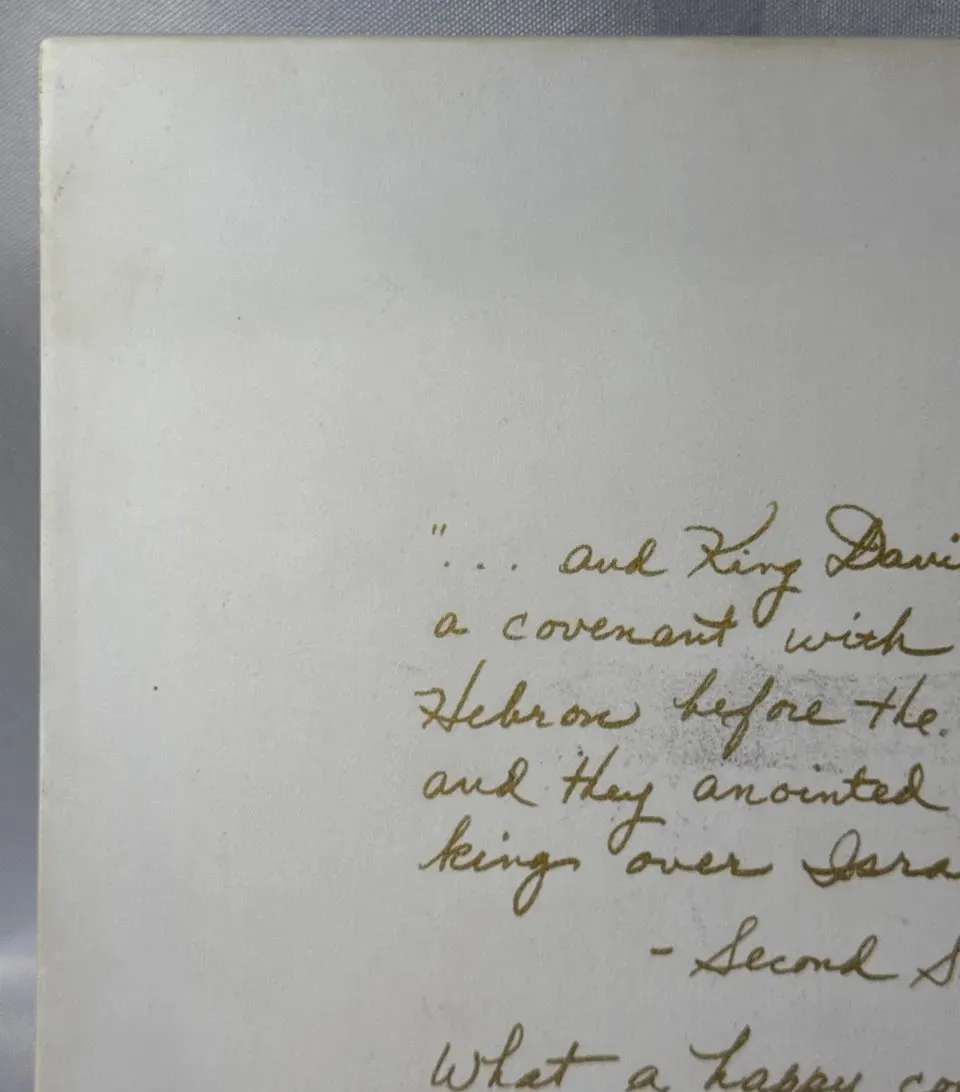 "... and King Davi
a covenant with
Hebron before the
and they anointed
king over Isra
- Second S
What a happy co